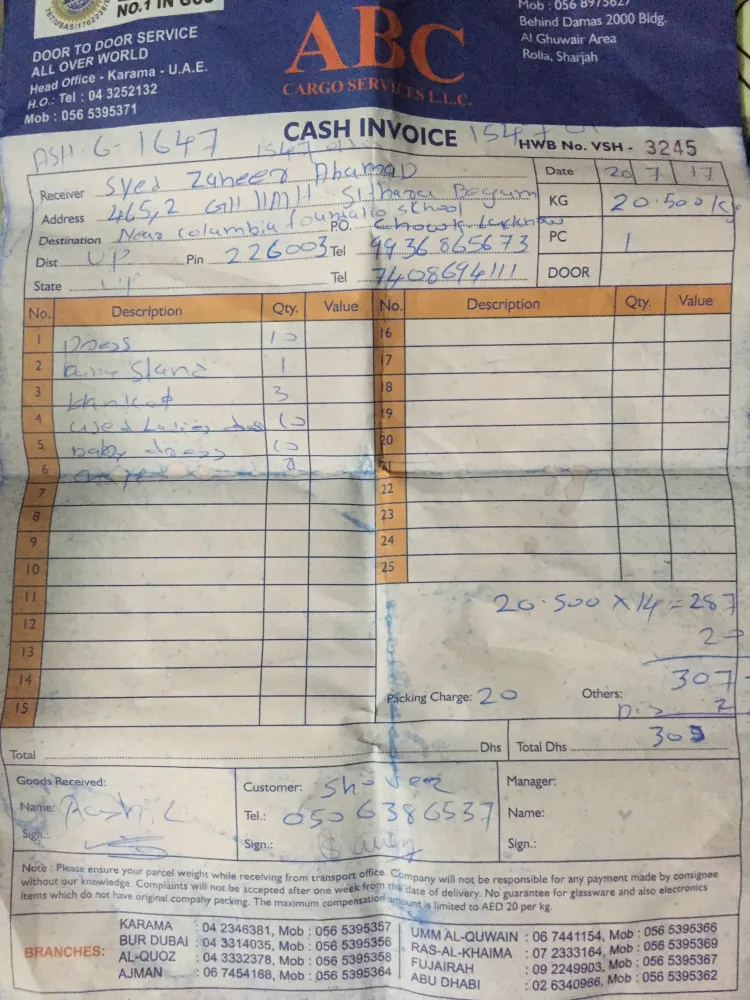 NO.1 IN
DOOR TO DOOR SERVICE
ALL OVER WORLD
Head Office - Karama - U.A.E.
H.O.: Tel : 04 3252132
Mob : 056 5395371
ABC
CARGO SERVICES L.L.C.
Mob : 056 8975627
Behind Damas 2000 Bldg.
Al Ghuwair Area
Rolla, Sharjah
CASH INVOICE
HWB No. VSH - 3245
Receiver Syed Zaheer Ahamad
Address 465,2 Begum
Destination Near columbia school
PO. Chowk Lucknow
Dist UP Pin 226003 Tel 9936865673
State UP Tel 7408694111
Date 20 7 17
KG 20.500 kg
PC 1
DOOR
No. Description Qty. Value No. Description Qty. Value
1 Dress 10 16
2 Stand 1 17
3 3 18
4 used Ladies dress 10 19
5 baby dress 10 20
6 21
7 22
8 23
9 24
10 25
11
12
13
14
15
20.500 X 14 = 287
307
Packing Charge: 20 Others:
Dis 2
305
Total Dhs Total Dhs
Goods Received:
Name:
Sign.:
Customer:
Tel.: 050 6386537
Sign.:
Manager:
Name:
Sign.:
Note : Please ensure your parcel weight while receiving from transport office. Company will not be responsible for any payment made by consignee
without our knowledge. Complaints will not be accepted after one week from the date of delivery. No guarantee for glassware and also electronics
items which do not have original company packing. The maximum compensation amount is limited to AED 20 per kg.
BRANCHES:
KARAMA : 04 2346381, Mob : 056 5395357
BUR DUBAI : 04 3314035, Mob : 056 5395356
AL-QUOZ : 04 3332378, Mob : 056 5395358
AJMAN : 06 7454168, Mob : 056 5395364
UMM AL-QUWAIN : 06 7441154, Mob : 056 5395366
RAS-AL-KHAIMA : 07 2333164, Mob : 056 5395369
FUJAIRAH : 09 2249903, Mob : 056 5395367
ABU DHABI : 02 6340966, Mob : 056 5395362